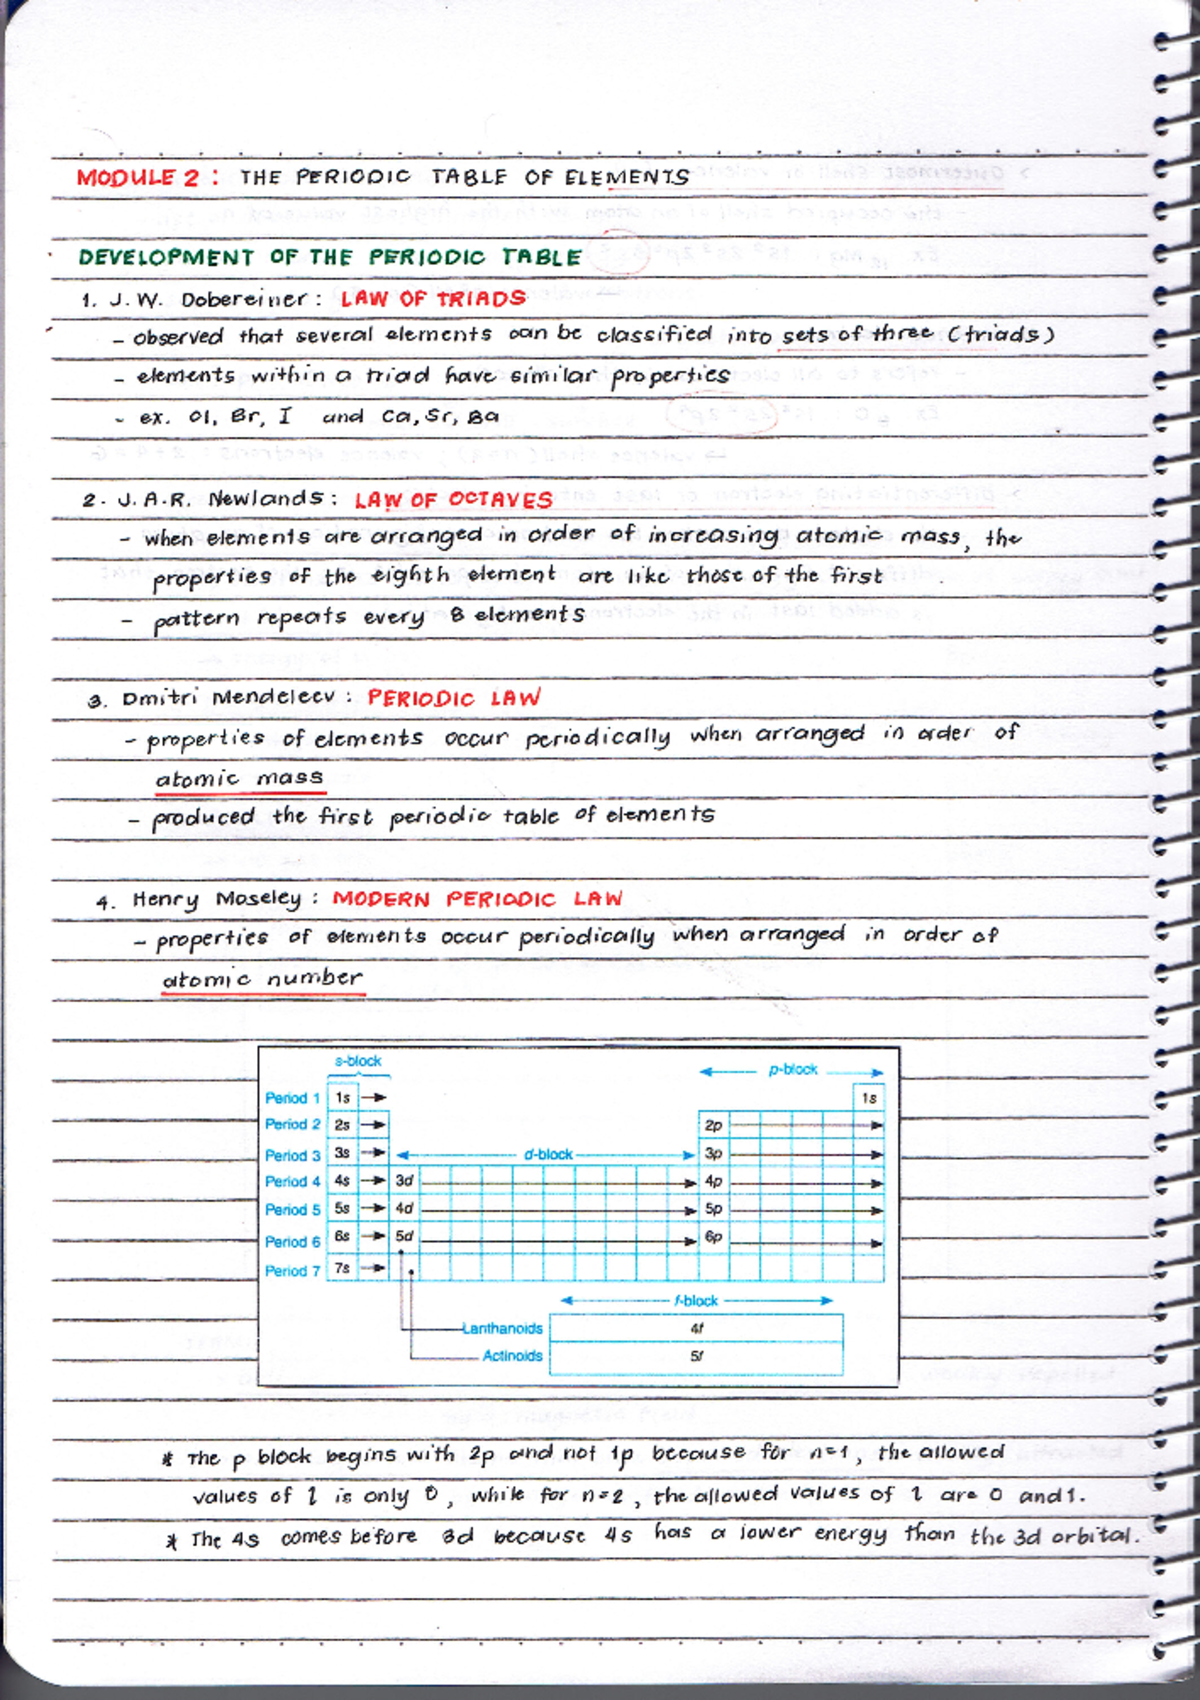 MODULE 2 : THE PERIODIC TABLE OF ELEMENTS
DEVELOPMENT OF THE PERIODIC TABLE
1. J. W. Dobereiner : LAW OF TRIADS
- observed that several elements can be classified into sets of three (triads)
- elements within a triad have similar properties
- ex. Cl, Br, I and Ca, Sr, Ba
2. J. A.R. Newlands : LAW OF OCTAVES
- when elements are arranged in order of increasing atomic mass, the
properties of the eighth element are like those of the first
- pattern repeats every 8 elements
3. Dmitri Mendeleev : PERIODIC LAW
- properties of elements occur periodically when arranged in order of
atomic mass
- produced the first periodic table of elements
4. Henry Moseley : MODERN PERIODIC LAW
- properties of elements occur periodically when arranged in order of
atomic number
s-block
p-block
Period 1 1s 1s
Period 2 2s 2p
Period 3 3s d-block 3p
Period 4 4s 3d 4p
Period 5 5s 4d 5p
Period 6 6s 5d 6p
Period 7 7s
f-block
Lanthanoids 4f
Actinoids 5f
* The p block begins with 2p and not 1p because for n=1, the allowed
values of l is only 0, while for n=2, the allowed values of l are 0 and 1.
* The 4s comes before 3d because 4s has a lower energy than the 3d orbital.